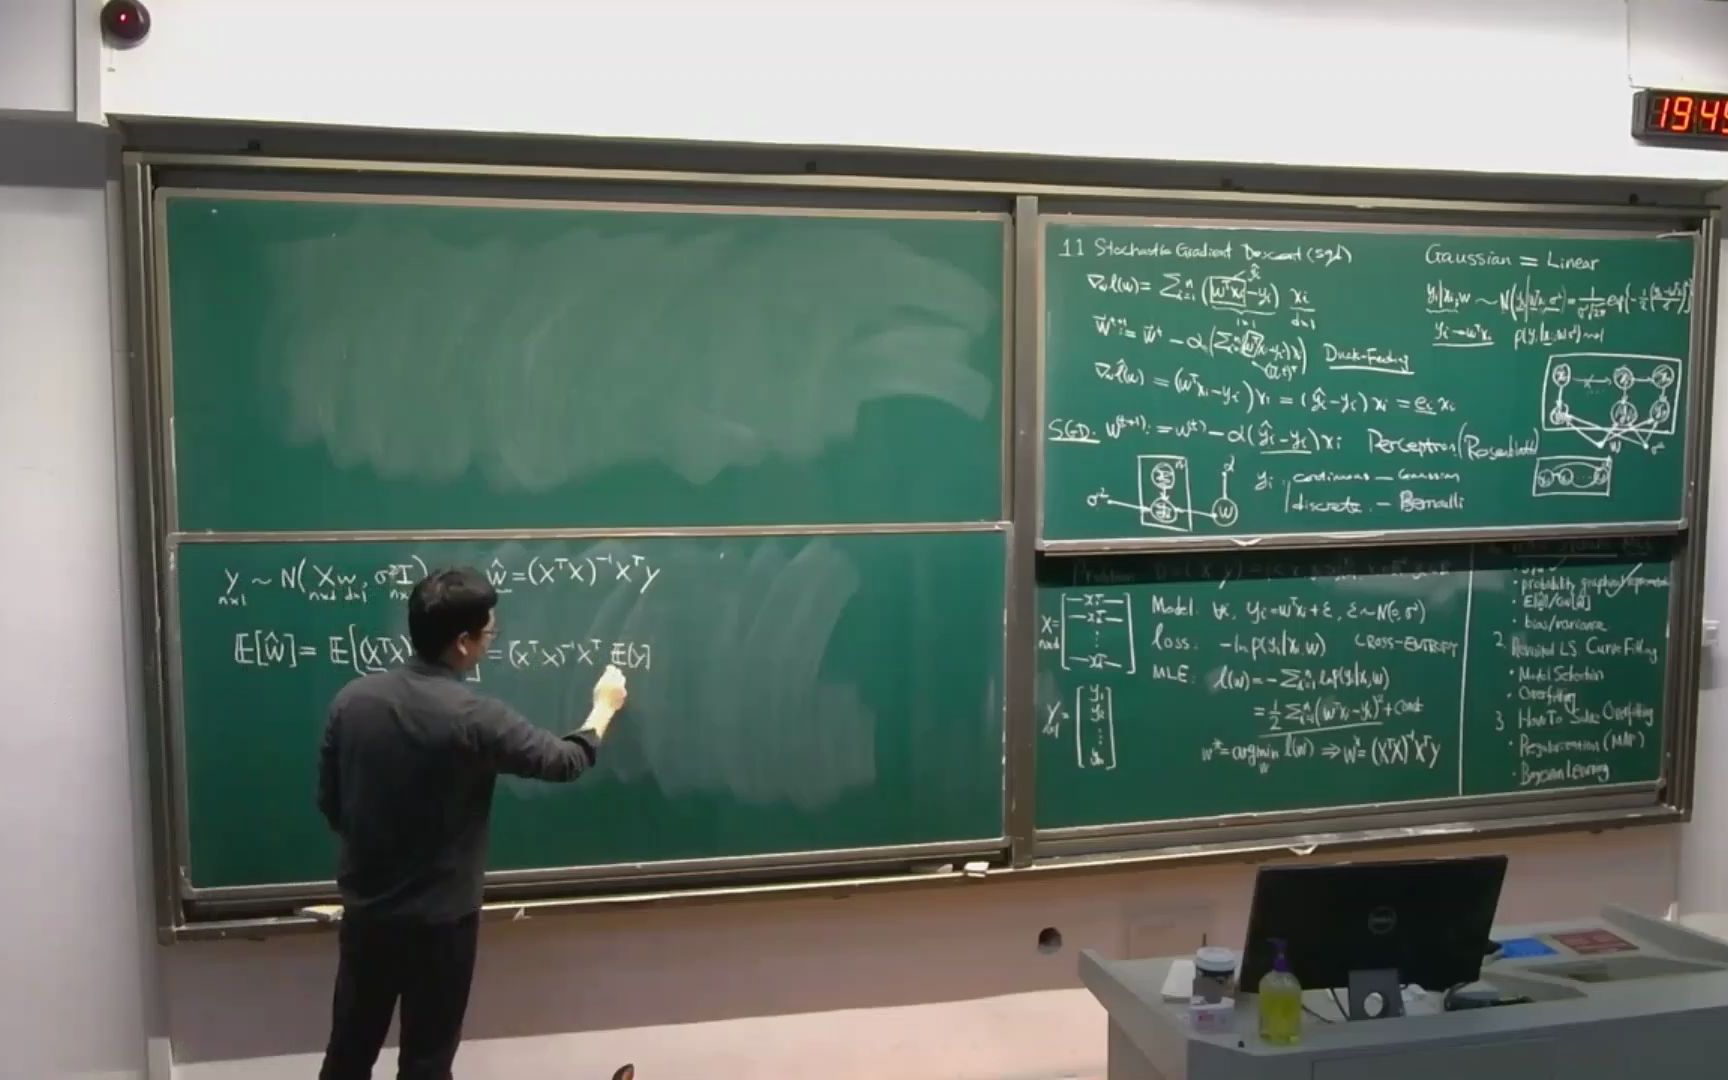 y ~ N( Xw, σ²I ) ŵ = (XᵀX)⁻¹Xᵀy
n×1 n×d d×1
𝔼[ŵ] = 𝔼[(XᵀX) ] = (XᵀX)⁻¹Xᵀ 𝔼[y]
11 Stochastic Gradient Descent (sgd)
∇w l(w) = Σᵢ₌₁ⁿ (wᵀxᵢ − yᵢ) xᵢ
ŷᵢ
1×1 d×1
Duck-Feeding
∇w l̂(w) = (wᵀxᵢ − yᵢ) xᵢ = (ŷᵢ − yᵢ) xᵢ = eᵢ xᵢ
SGD: w⁽ᵗ⁺¹⁾ := w⁽ᵗ⁾ − α(ŷᵢ − yᵢ)xᵢ Perceptron (Rosenblatt)
σ² yᵢ w α
yᵢ: continuous — Gaussian
discrete — Bernoulli
Gaussian = Linear
yᵢ|xᵢ,w ~ N(yᵢ|wᵀxᵢ, σ²) = 1/(σ√2π) exp{−1/2 ((yᵢ−wᵀxᵢ)/σ)²}
yᵢ − wᵀxᵢ
w σ²
Problem
X = [ —x₁ᵀ— —x₂ᵀ— ⋮ —xₙᵀ— ]
n×d
y = [ y₁ y₂ ⋮ yₙ ]
n×1
Model: ∀i, yᵢ = wᵀxᵢ + ε, ε ~ N(0, σ²)
loss: −ln p(yᵢ|xᵢ, w) CROSS-ENTROPY
MLE: l(w) = −Σᵢ₌₁ⁿ ln p(yᵢ|xᵢ, w)
= 1/2 Σᵢ₌₁ⁿ (wᵀxᵢ − yᵢ)² + const
w* = argmin l(w) ⇒ w* = (XᵀX)⁻¹Xᵀy
w
• probability graphical representation
• bias/variance
2. Revisited LS Curve Fitting
• Model Selection
• Overfitting
3 How To Solve Overfitting
• Regularization (MAP)
• Bayesian Learning
19:4
DELL